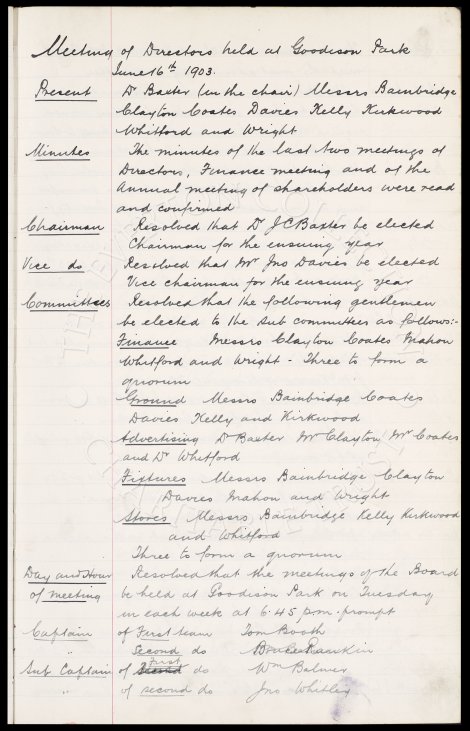 Meeting of Directors held at Goodison Park
June 16th 1903.
Present Dr Baxter (in the chair) Messrs Bainbridge
Clayton Coates Davies Kelly Kirkwood
Whitford and Wright
Minutes The minutes of the last two meetings of
Directors, Finance meeting and of the
Annual meeting of shareholders were read
and confirmed
Chairman Resolved that Dr J C Baxter be elected
Chairman for the ensuing year
Vice do Resolved that Mr Jno Davies be elected
Vice chairman for the ensuing year
Committees Resolved that the following gentlemen
be elected to the sub committees as follows:-
Finance Messrs Clayton Coates Mahon
Whitford and Wright - Three to form a
quorum
Ground Messrs Bainbridge Coates
Davies Kelly and Kirkwood
Advertising Dr Baxter Mr Clayton Mr Coates
and Dr Whitford
Fixtures Messrs Bainbridge Clayton
Davies Mahon and Wright
Stores Messrs Bainbridge Kelly Kirkwood
and Whitford
Three to form a quorum
Day and Hour Resolved that the meetings of the Board
of meeting be held at Goodison Park on Tuesday
in each week at 6.45 p.m. prompt
Captain of First team Tom Booth
Second do Bruce Rankin
Sub Captain of First do Wm Balmer
" of second do Jno Whitley